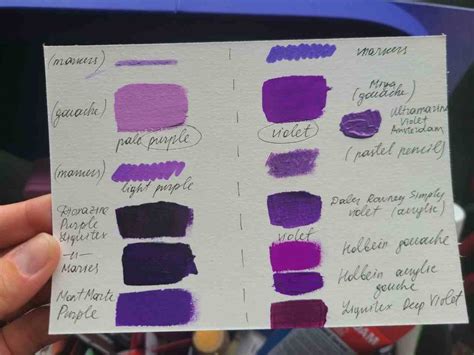 (markers)
(gouache)
pale purple
(markers)
light purple
Dioxazine
Purple
Liquitex
— 11 —
Maries
Mont Marte
Purple
markers
Miya
(gouache)
violet
Ultramarine
Violet
Amsterdam
(pastel pencil)
Daler Rowney Simply
violet (acrylic)
violet
Holbein gouache
Holbein acrylic
gouche
Liquitex Deep Violet